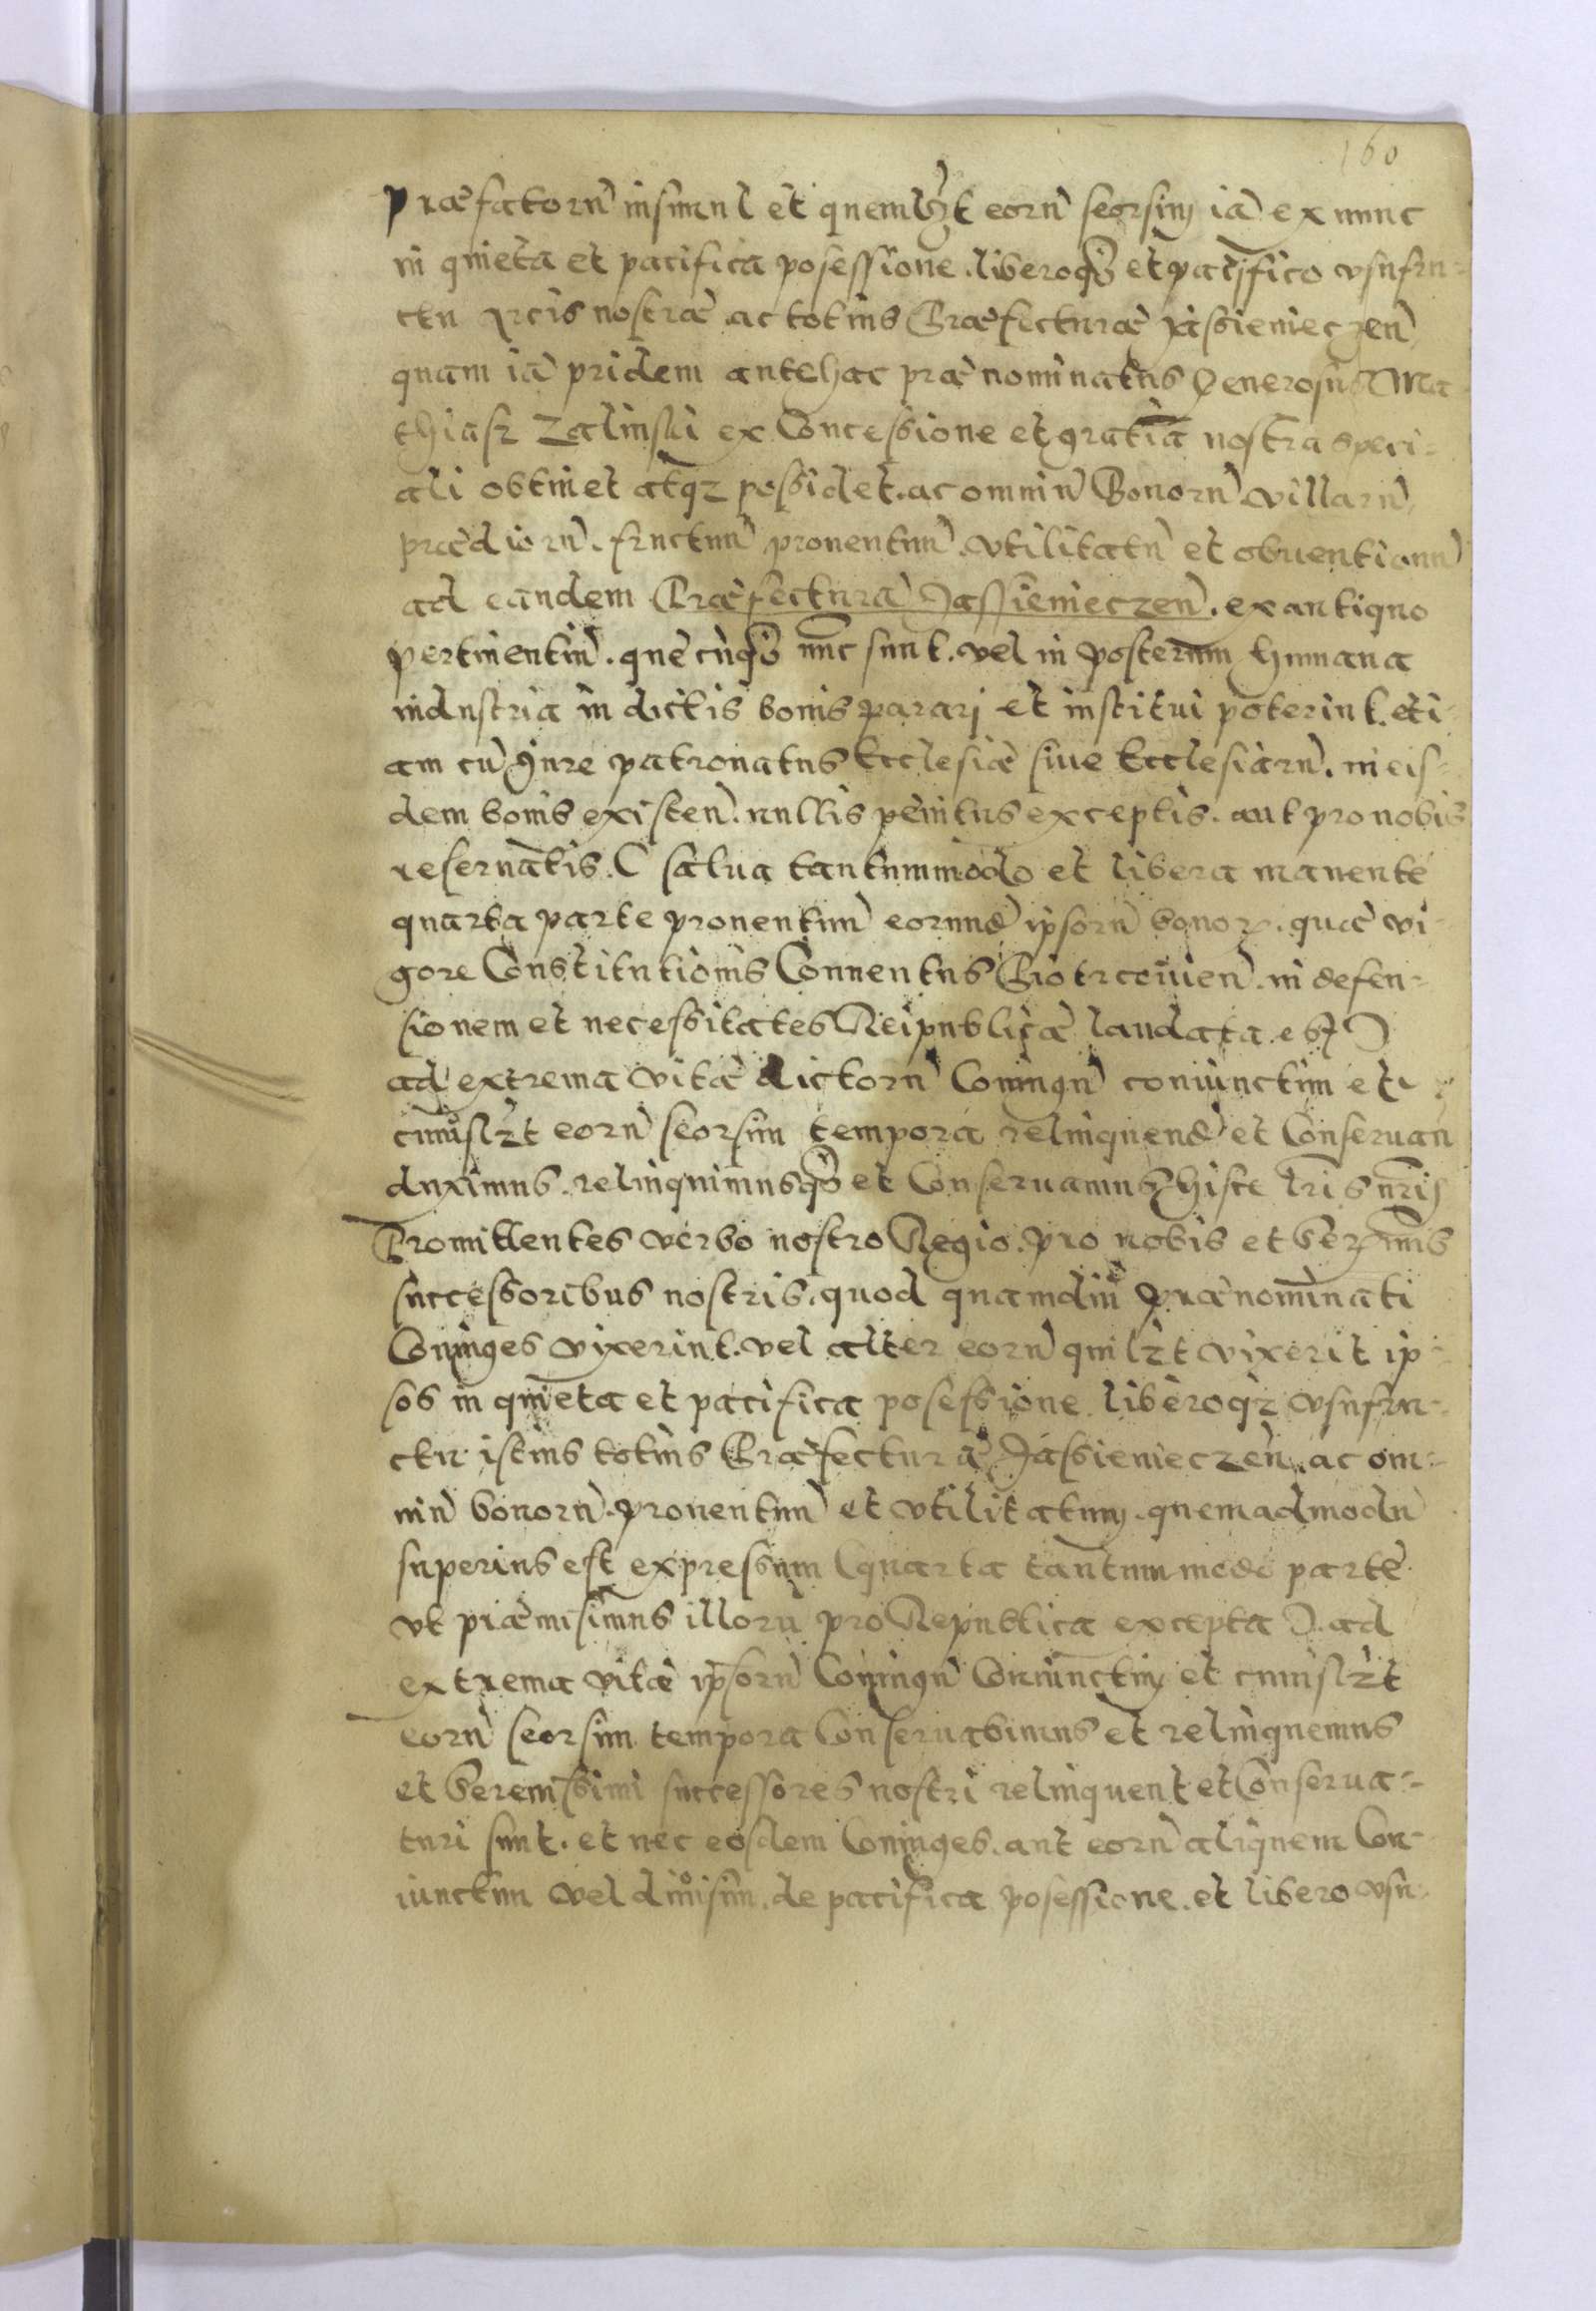 160
Præfatorū insimul et quemlꝫt eorū seorsim iā ex nunc
in quieta et pacifica posessione. liberoqꝫ et pacifico vsufru-
ctu Arcis nostræ. ac totius Præfecturæ Jassienieczeñ
quam iā pridem antehac prænominatus Generosus Ma-
thiasz Zalinski ex Concessione et gratia nostra speci-
ali obtinet atqꝫ possidet. ac omniū Bonorū villarū
prædiorū. fructuū prouentuū. vtilitatū et obuentionū
ad eandem Præfecturā Jassienieczeñ. ex antiquo
pertinentiū. quæcūqꝫ nūc sunt. vel in posterum humana
industria in dictis bonis parari et institui poterint. eti-
am cū iure patronatus Ecclesiæ siue Ecclesiarū. in eis-
dem bonis existeñ. nullis penitus exceptis. aut pro nobis
reseruatis. ( salua tantummodo et libera manente
quarta parte prouentuū eorundē ipsorū bonoꝝ. quæ vi-
gore Constitutionis Conuentus Piotrcouieñ. in defen-
sionem et necessitates Reipublicæ laudata est )
ad extrema vitæ dictorū Coniugū coniunctim et
cuiuslꝫt eorū seorsim tempora relinquend̄ et Conseruan̄
duximus. relinquimusqꝫ et Conseruamus hisce lr̄is nr̄is
Promittentes verbo nostro Regio. pro nobis et Serenmis
successoribus nostris. quod quamdiu prænominati
Coniuges vixerint. vel alter eorū quilꝫt vixerit ip-
sos in quieta et pacifica posessione liberoqꝫ vsufru-
ctu istius totius Præfecturæ Jassienieczeñ. ac om-
niū bonorū. prouentuū et vtilitatum. quemadmodū
superius est expressum (quarta tantummodo parte
vt præmisimus illorū pro Republica excepta ). ad
extrema vitæ ipsorū Coniugū Coniunctim et cuiuslꝫt
eorū seorsim tempora Conseruabimus et relinquemus
et Serenissimi successores nostri relinquent et Conserua-
turi sunt. et nec eosdem Coniuges. aut eorū aliquem Con-
iunctim vel diuisim. de pacifica posessione. et libero vsu-